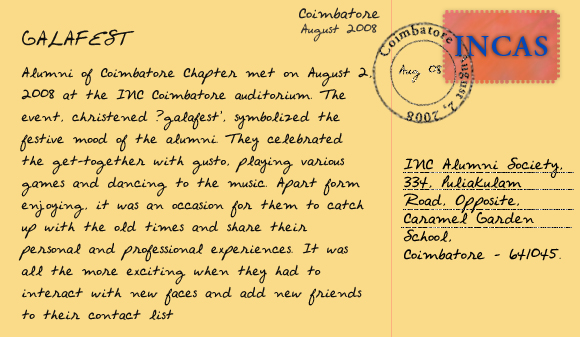 Coimbatore
August 2008
GALAFEST
Alumni of Coimbatore Chapter met on August 2,
2008 at the INC Coimbatore auditorium. The
event, christened ?galafest', symbolized the
festive mood of the alumni. They celebrated
the get-together with gusto, playing various
games and dancing to the music. Apart form
enjoying, it was an occasion for them to catch
up with the old times and share their
personal and professional experiences. It was
all the more exciting when they had to
interact with new faces and add new friends
to their contact list
INCAS
Coimbatore
Aug 08
August 2, 2008
INC Alumni Society,
334, Puliakulam
Road, Opposite,
Caramel Garden
School,
Coimbatore - 641045.